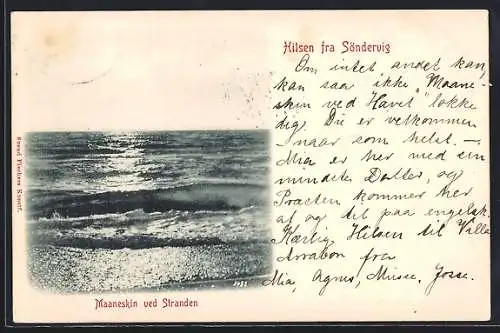 Hilsen fra Söndervig
Om intet andet kan,
kan saa ikke "Maane-
skin ved Havet" lokke
dig. Du er velkommen
naar som helst. —
Mia er her med sin
mindste Datter, og
Præsten kommer her
af og til paa
Kærlig Hilsen til Ville
fra
Mia, Agnes, Musse, Josse.
Maaneskin ved Stranden
3031
Svend Fischers Kunstf.